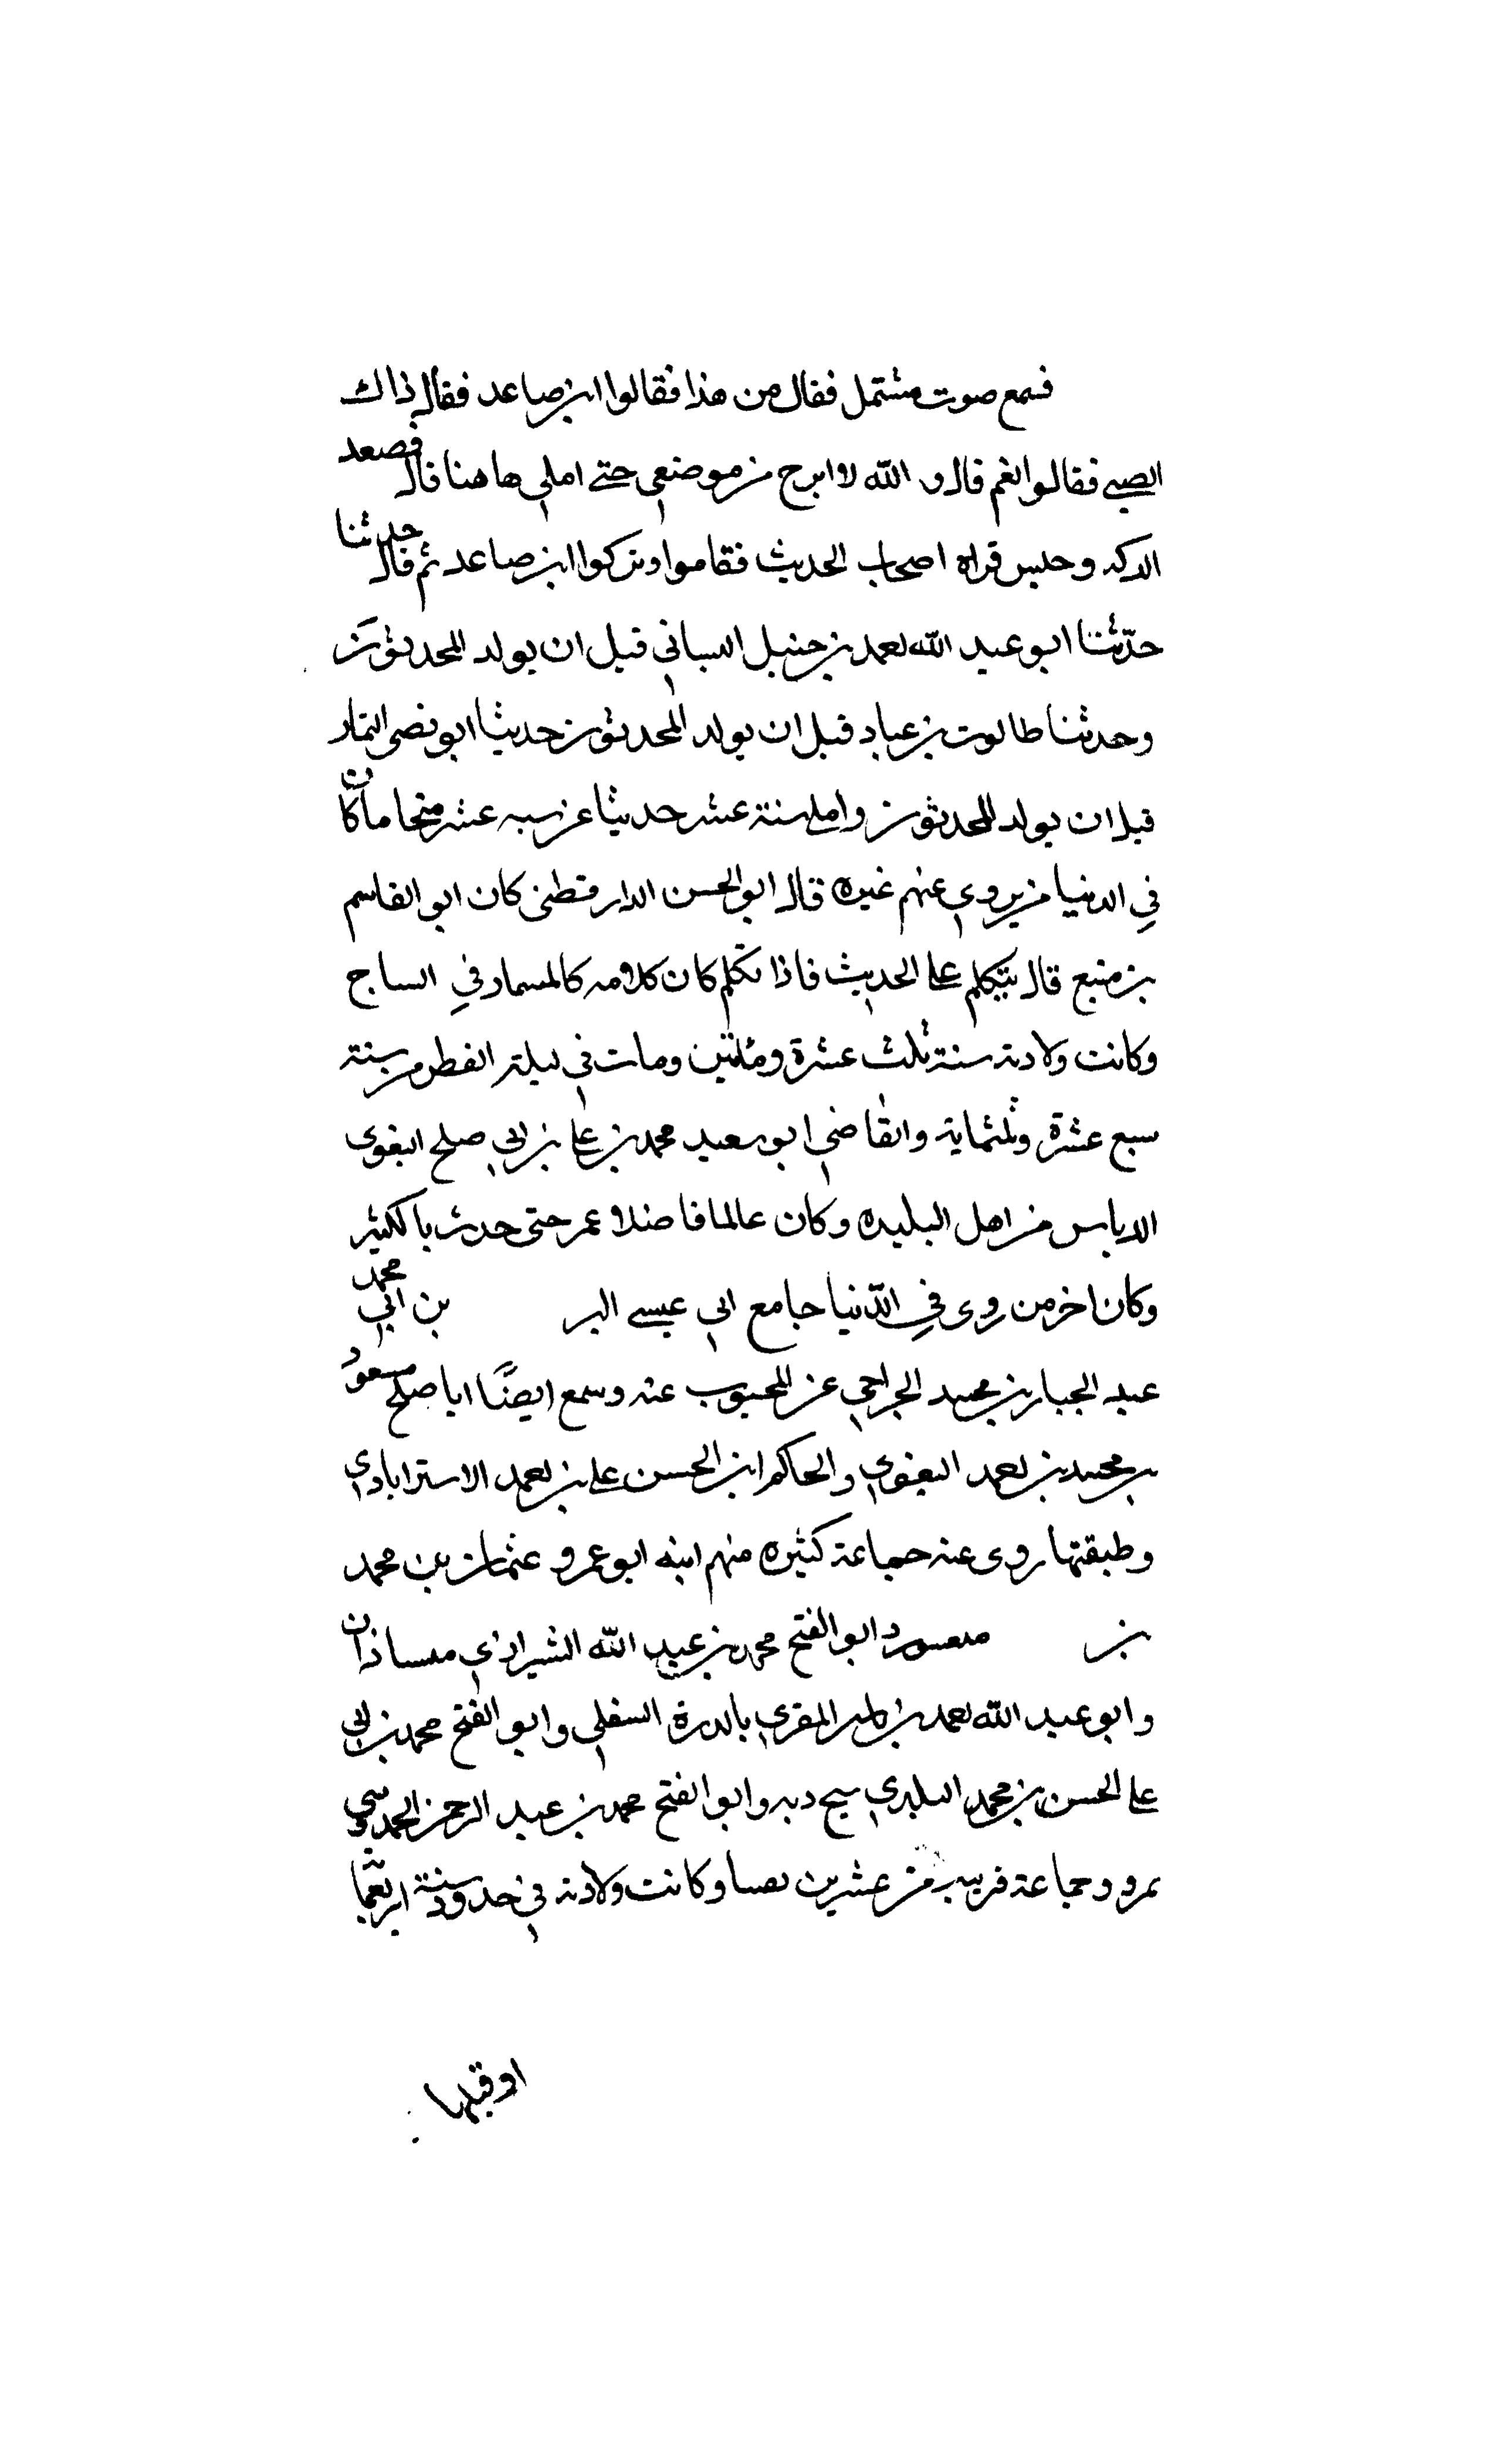 فسمع صوت مشتمل فقال من هذا فقالوا ابن صاعد فقال ذاك
الصبي فقالوا نعم قال والله لا ابرح من موضعي حتى املي هاهنا قال فصعد
الدكه وجلس قراه اصحاب الحديث فقاموا وتركوا ابن صاعد ثم قال حدثنا
حدّثنا ابو عبد الله احمد بن حنبل السباني قبل ان يولد المحدثون
وحدثنا طالوت بن عباد قبل ان يولد المحدثون حدثنا ابو نصر التمار
قبل ان يولد المحدثون واملى ستة عشر حديثا عن ستة عشر شيخا ما كان
في الدنيا من يروي عنهم غيره قال ابو الحسن الدارقطنى كان ابو القاسم
بن منيع قال يتكلم على الحديث فاذا تكلم كان كلامه كالمسمار في الساج
وكانت ولادته سنة ثلث عشرة ومئتين ومات في ليلة الفطر من سنة
سبع عشرة وثلثماية والقاضي ابو سعيد محمد بن علي بن ابي صلح البغوى
الدباس من اهل البليده وكان عالما فاضلا عمر حتى حدث بالكثير
وكان اخر من روى في الدّنيا جامع ابي عيسى البر بن ابي محمد
عبد الجبار بن محمد الجراحي عن المحبوب عنه وسمع ايضًا ابا صلح مسعود
بن محمد بن احمد البغوي والحاكم ابن الحسن علي بن احمد الاسترابادي
وطبقتها روى عنه جماعة كثيره منهم ابنه ابو عمرو عثمان بن محمد
بن مسعود ابو الفتح محمد بن عبد الله الشيرازي
وابو عبد الله احمد بن المقري بالدرة السفلي وابو الفتح محمد بن ابي
علي الحسن بن محمد البلدي وابو الفتح محمد بن عبد الرحمن
بمرو وجماعة قريبه من عشرين نفسا وكانت ولادته في حدود سنة اربعما
او قبلها